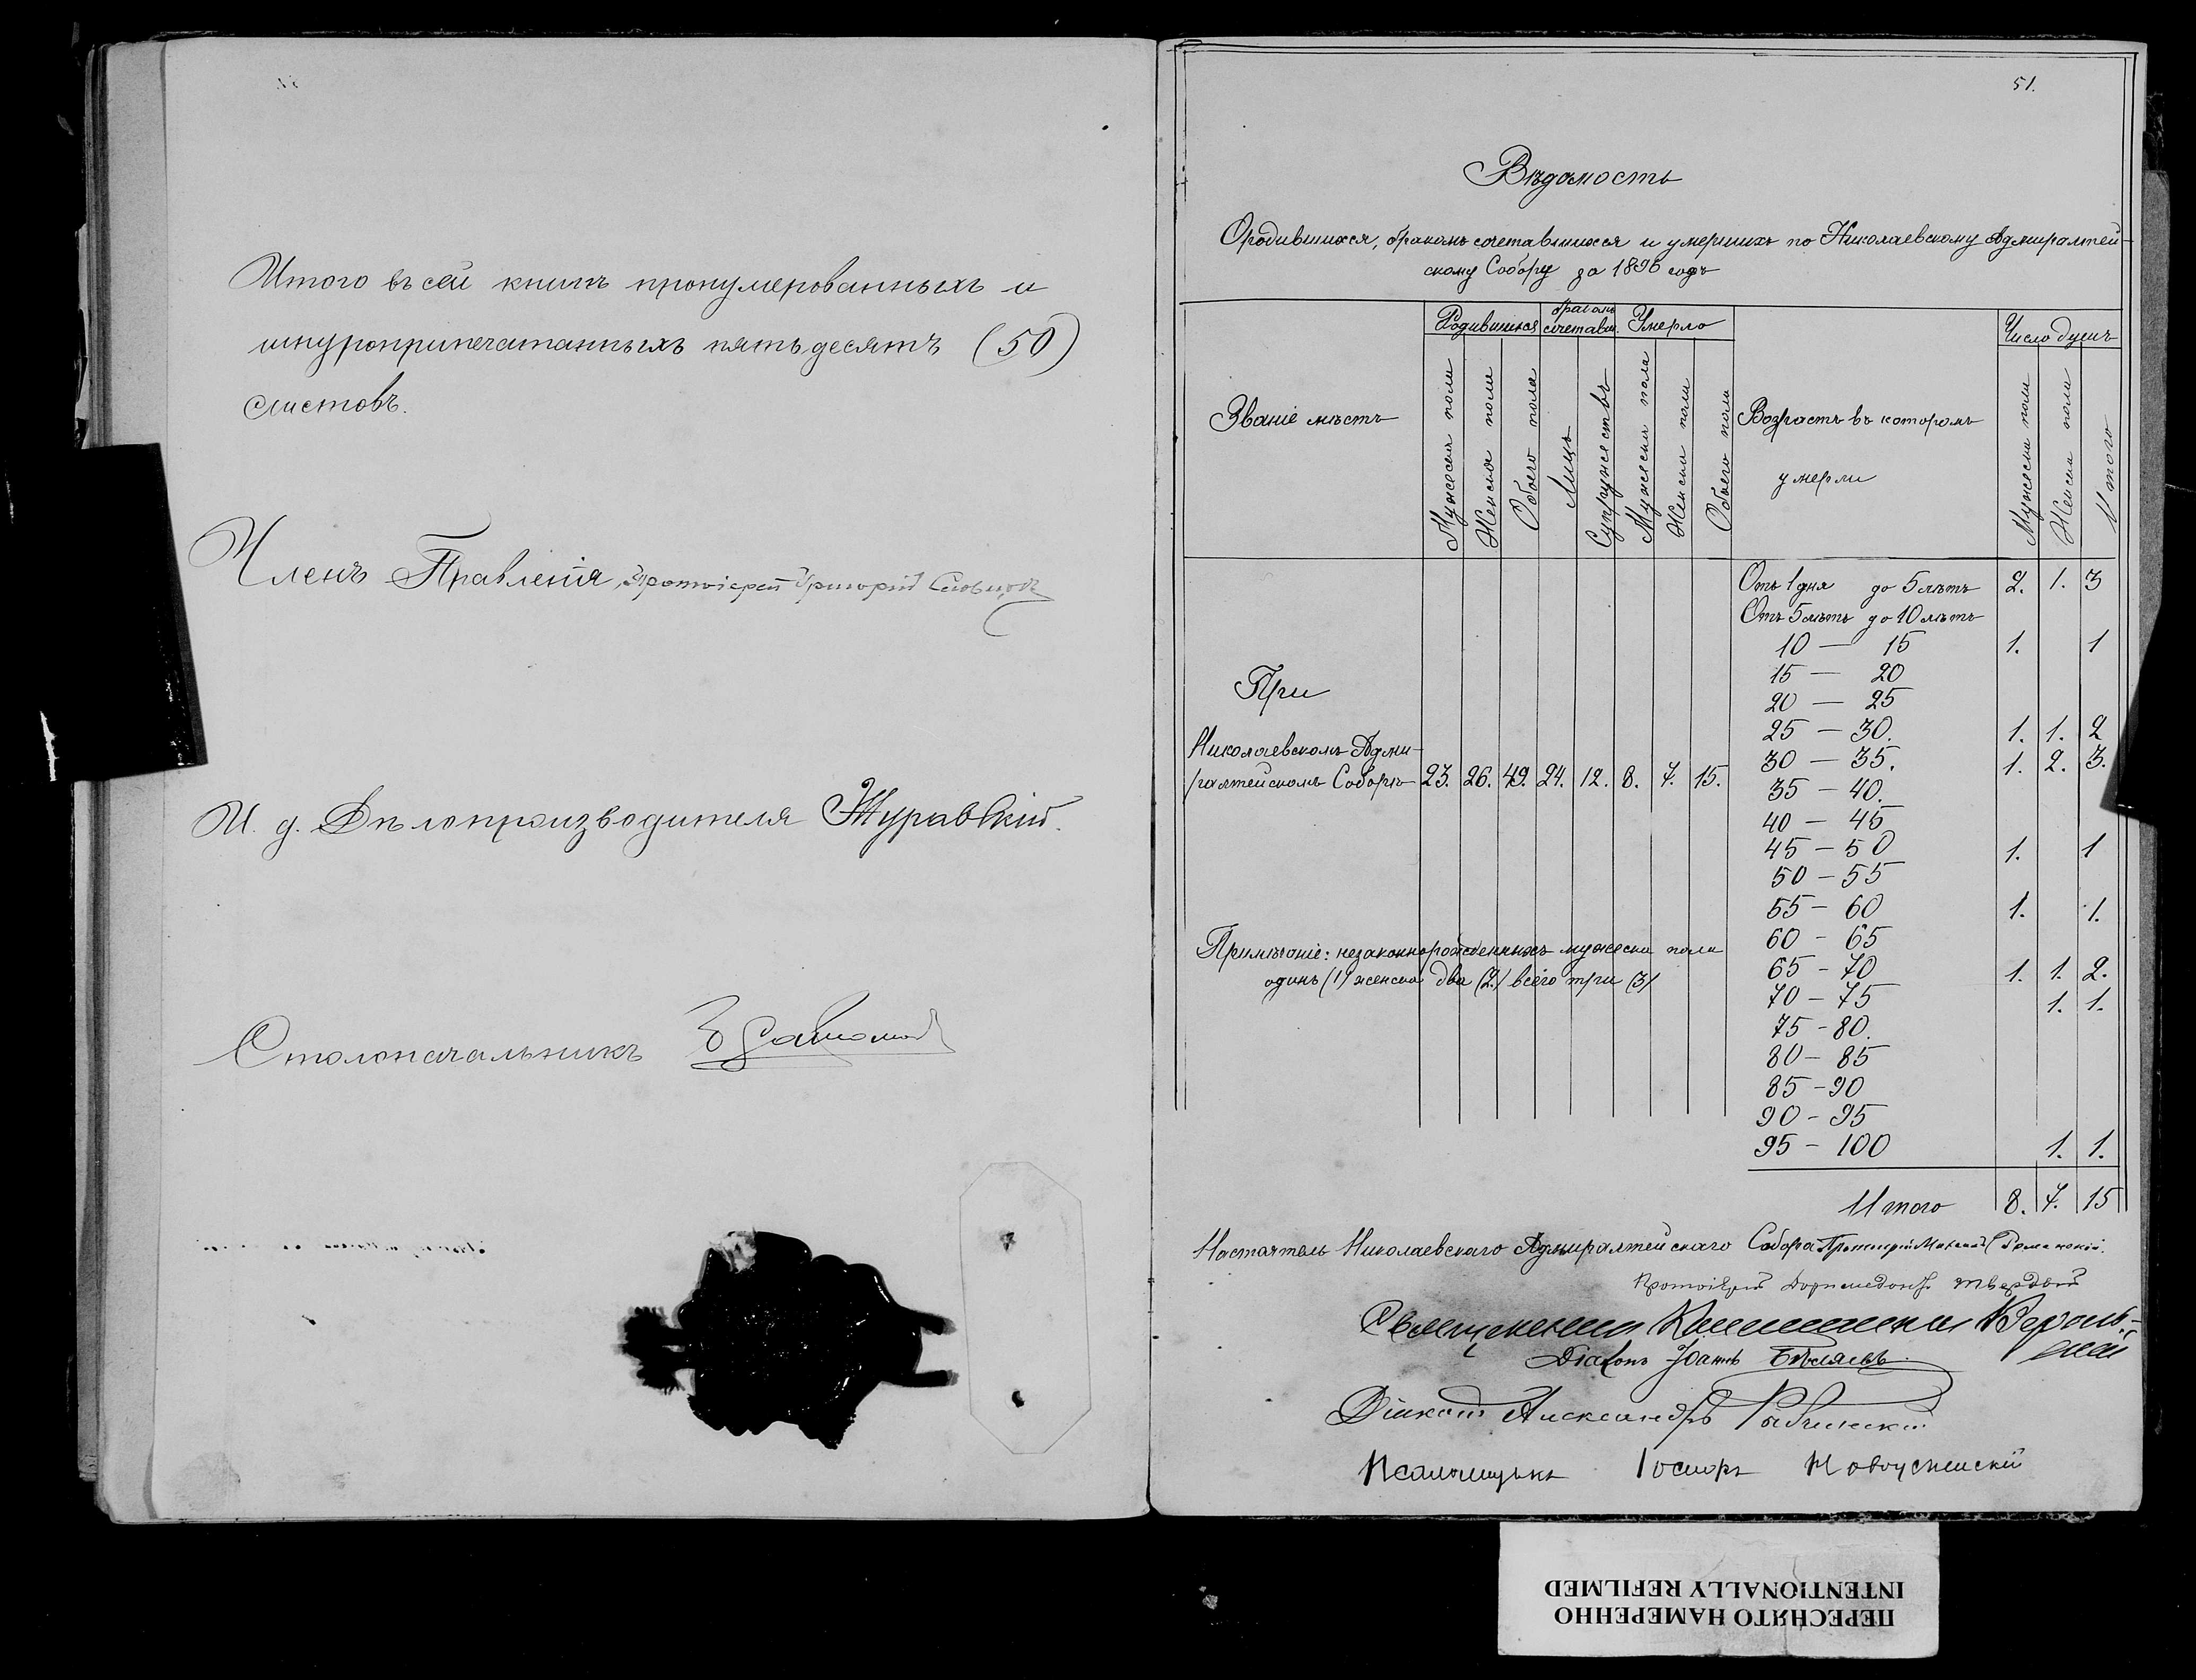 Итого въ сей книгѣ пронумерованныхъ и
шнуроприпечатанныхъ пятьдесятъ (50)
листовъ.
Членъ Правленія, Протоіерей Григорій
И. д. Дѣлопроизводителя Журавскій.
Столоначальникъ
51.
Вѣдомость
О родившихся, бракомъ сочетавшихся и умершихъ по Николаевскому Адмиралтей-
скому Собору за 1896 годъ
Званіе мѣстъ
Родившихся
бракомъ сочетавш.
Умерло
Возрастъ въ которомъ умерли
Число душъ
Мужеска пола
Женска пола
Обоего пола
Лицъ
Супружествъ
Мужеска пола
Женска пола
Обоего пола
Мужеска пола
Женска пола
Итого
При
Николаевскомъ Адми-
ралтейскомъ Соборѣ 23. 26. 49. 24. 12. 8. 7. 15.
Примѣчаніе: незаконнорожденныхъ мужеска пола
одинъ (1) женска два (2) всего три (3)
Отъ 1 дня до 5 лѣтъ 2. 1. 3
Отъ 5 лѣтъ до 10 лѣтъ
10 — 15 1. 1
15 — 20
20 — 25
25 — 30. 1. 1. 2
30 — 35. 1. 2. 3.
35 — 40.
40 — 45
45 — 50 1. 1
50 — 55
55 — 60 1. 1.
60 — 65
65 — 70 1. 1. 2.
70 — 75 1. 1.
75 — 80.
80 — 85
85 — 90
90 — 95
95 — 100 1. 1.
Итого 8. 7. 15
Настоятель Николаевскаго Адмиралтейскаго Собора Протоіерей
Протоіерей Доримедонтъ Твердый
Священникъ
Діаконъ Іоаннъ Бѣляевъ
Діаконъ Александръ
Псаломщикъ Іосифъ
ПЕРЕСНЯТО НАМЕРЕННО
INTENTIONALLY REFILMED